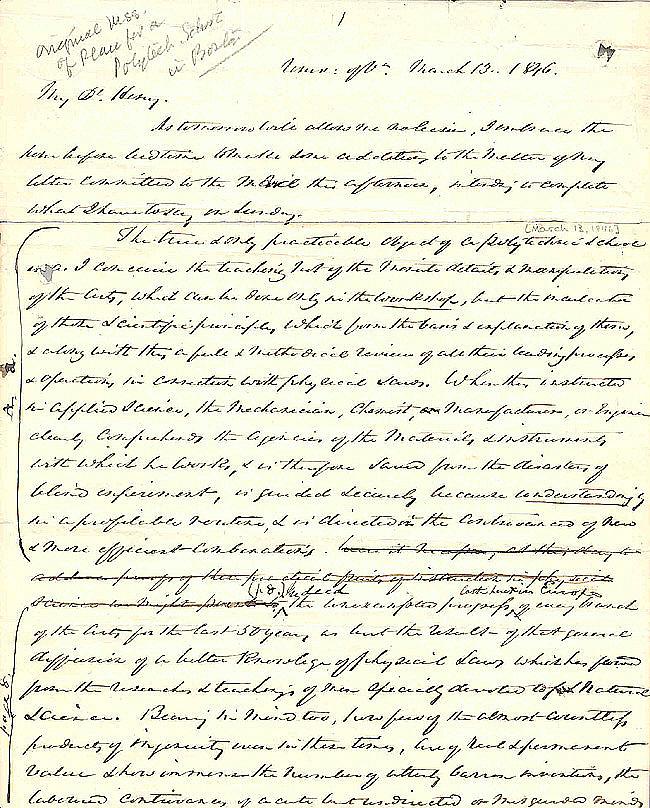 1
original mss.
of Plan for a
Polytech School
in Boston
Univ: of Va. March 13. 1846.
My Dr. Henry.
As tomorrow will allow me no leisure, I embrace the
hour before bedtime to make some additions to the matter of my
letter committed to the Mail this afternoon, intending to complete
what I have to say on Sunday.
[March 13, 1846]
The true & only practicable object of a polytechnic school
is as I conceive the teaching not of the minute details & manipulations
of the Arts, which can be done only in the workshop, but the inculcation
of those scientific principles which form the basis & explanation of them,
& along with this a full & methodical review of all their leading processes
& operations in connection with physical Laws. When thus instructed
in applied Science, the Mechanician, Chemist, Manufacturer, or Engineer
clearly comprehends the agencies of the Materials & instruments
with which he works, & is therefore saved from the disasters of
blind experiment, is guided securely because understandingly
in a profitable routine, & is directed in the contrivance of new
& more efficient combinations.
(p. 8.) Indeed
both here & in Europe
the unexampled progress, of every branch
of the Arts for the last 50 years, is but the result of that general
diffusion of a better knowledge of physical Laws which has
from the researches & teachings of men specially devoted to Natural
Science. Bearing in Mind too, how few of the almost countless
products of ingenuity even in these times, are of real & permanent
value & how immense the number of utterly barren inventions, the
laboured contrivances of acute but undirected or misguided minds
page 8.